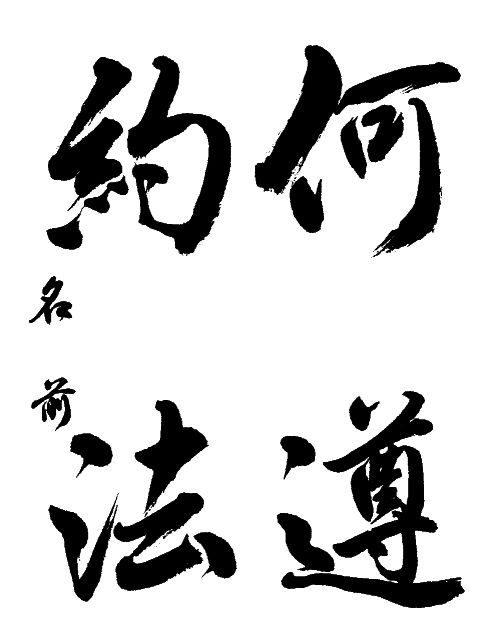 何遵
約法
名前